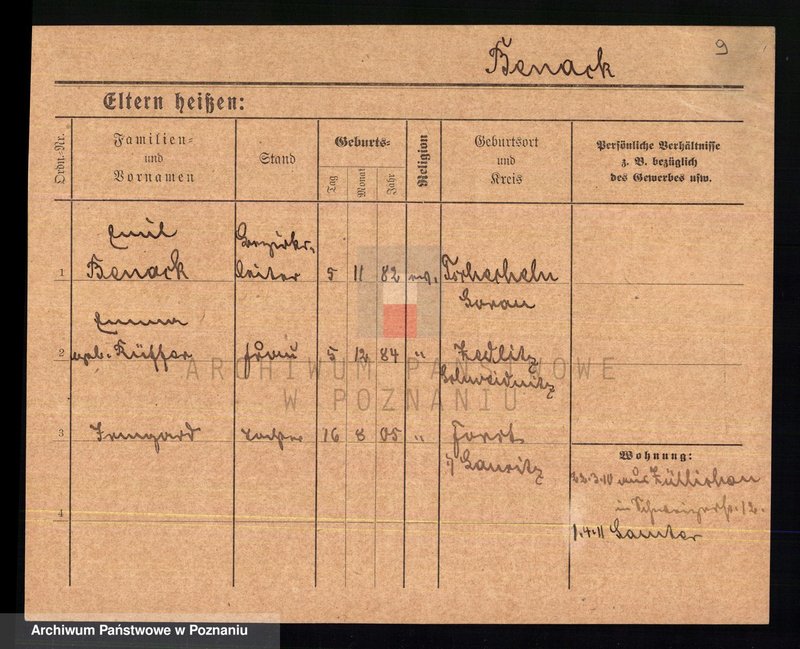 9
Benack
Eltern heißen:
Ordn.-Nr.
Familien-
und
Vornamen
Stand
Geburts-
Tag
Monat
Jahr
Religion
Geburtsort
und
Kreis
Persönliche Verhältnisse
z. B. bezüglich
des Gewerbes usw.
Emil
Bezirks-
1 Benack leiter 5 11 82 ev.
Sorau
Emma
2 geb. Küffer Frau 5 12 84 " Zedlitz
Schweidnitz
ARCHIWUM PAŃSTWOWE
W POZNANIU
3 Irmgard 16 8 05 " Forst
Wohnung:
i/ Lausitz
22.3.10 aus Züllichau
in 12.
4
1.4.11 Samter
Archiwum Państwowe w Poznaniu